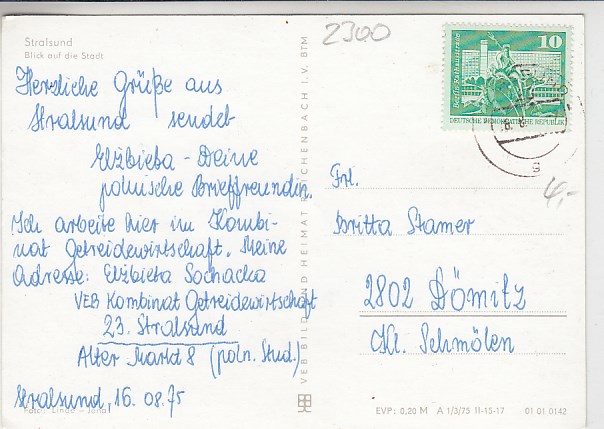 Stralsund
Blick auf die Stadt
Herzliche Grüße aus
Stralsund sendet
Elżbieta - Deine
polnische Brieffreundin.
Ich arbeite hier im Kombi-
nat Getreidewirtschaft. Meine
Adresse: Elżbieta Sochacka
VEB Kombinat Getreidewirtschaft
23. Stralsund
Alter Markt 8 (poln. Stud.)
Stralsund, 16.08.75
Foto: Linde - Jena
VEB BILD UND HEIMAT REICHENBACH I.V. BTM
2300
Berlin, Rathausstraße
10
DEUTSCHE DEMOKRATISCHE REPUBLIK
4,-
Frl.
Britta Stamer
2802 Dömitz
Kl. Schmölen
EVP: 0,20 M A 1/3/75 II-15-17 01 01 0142